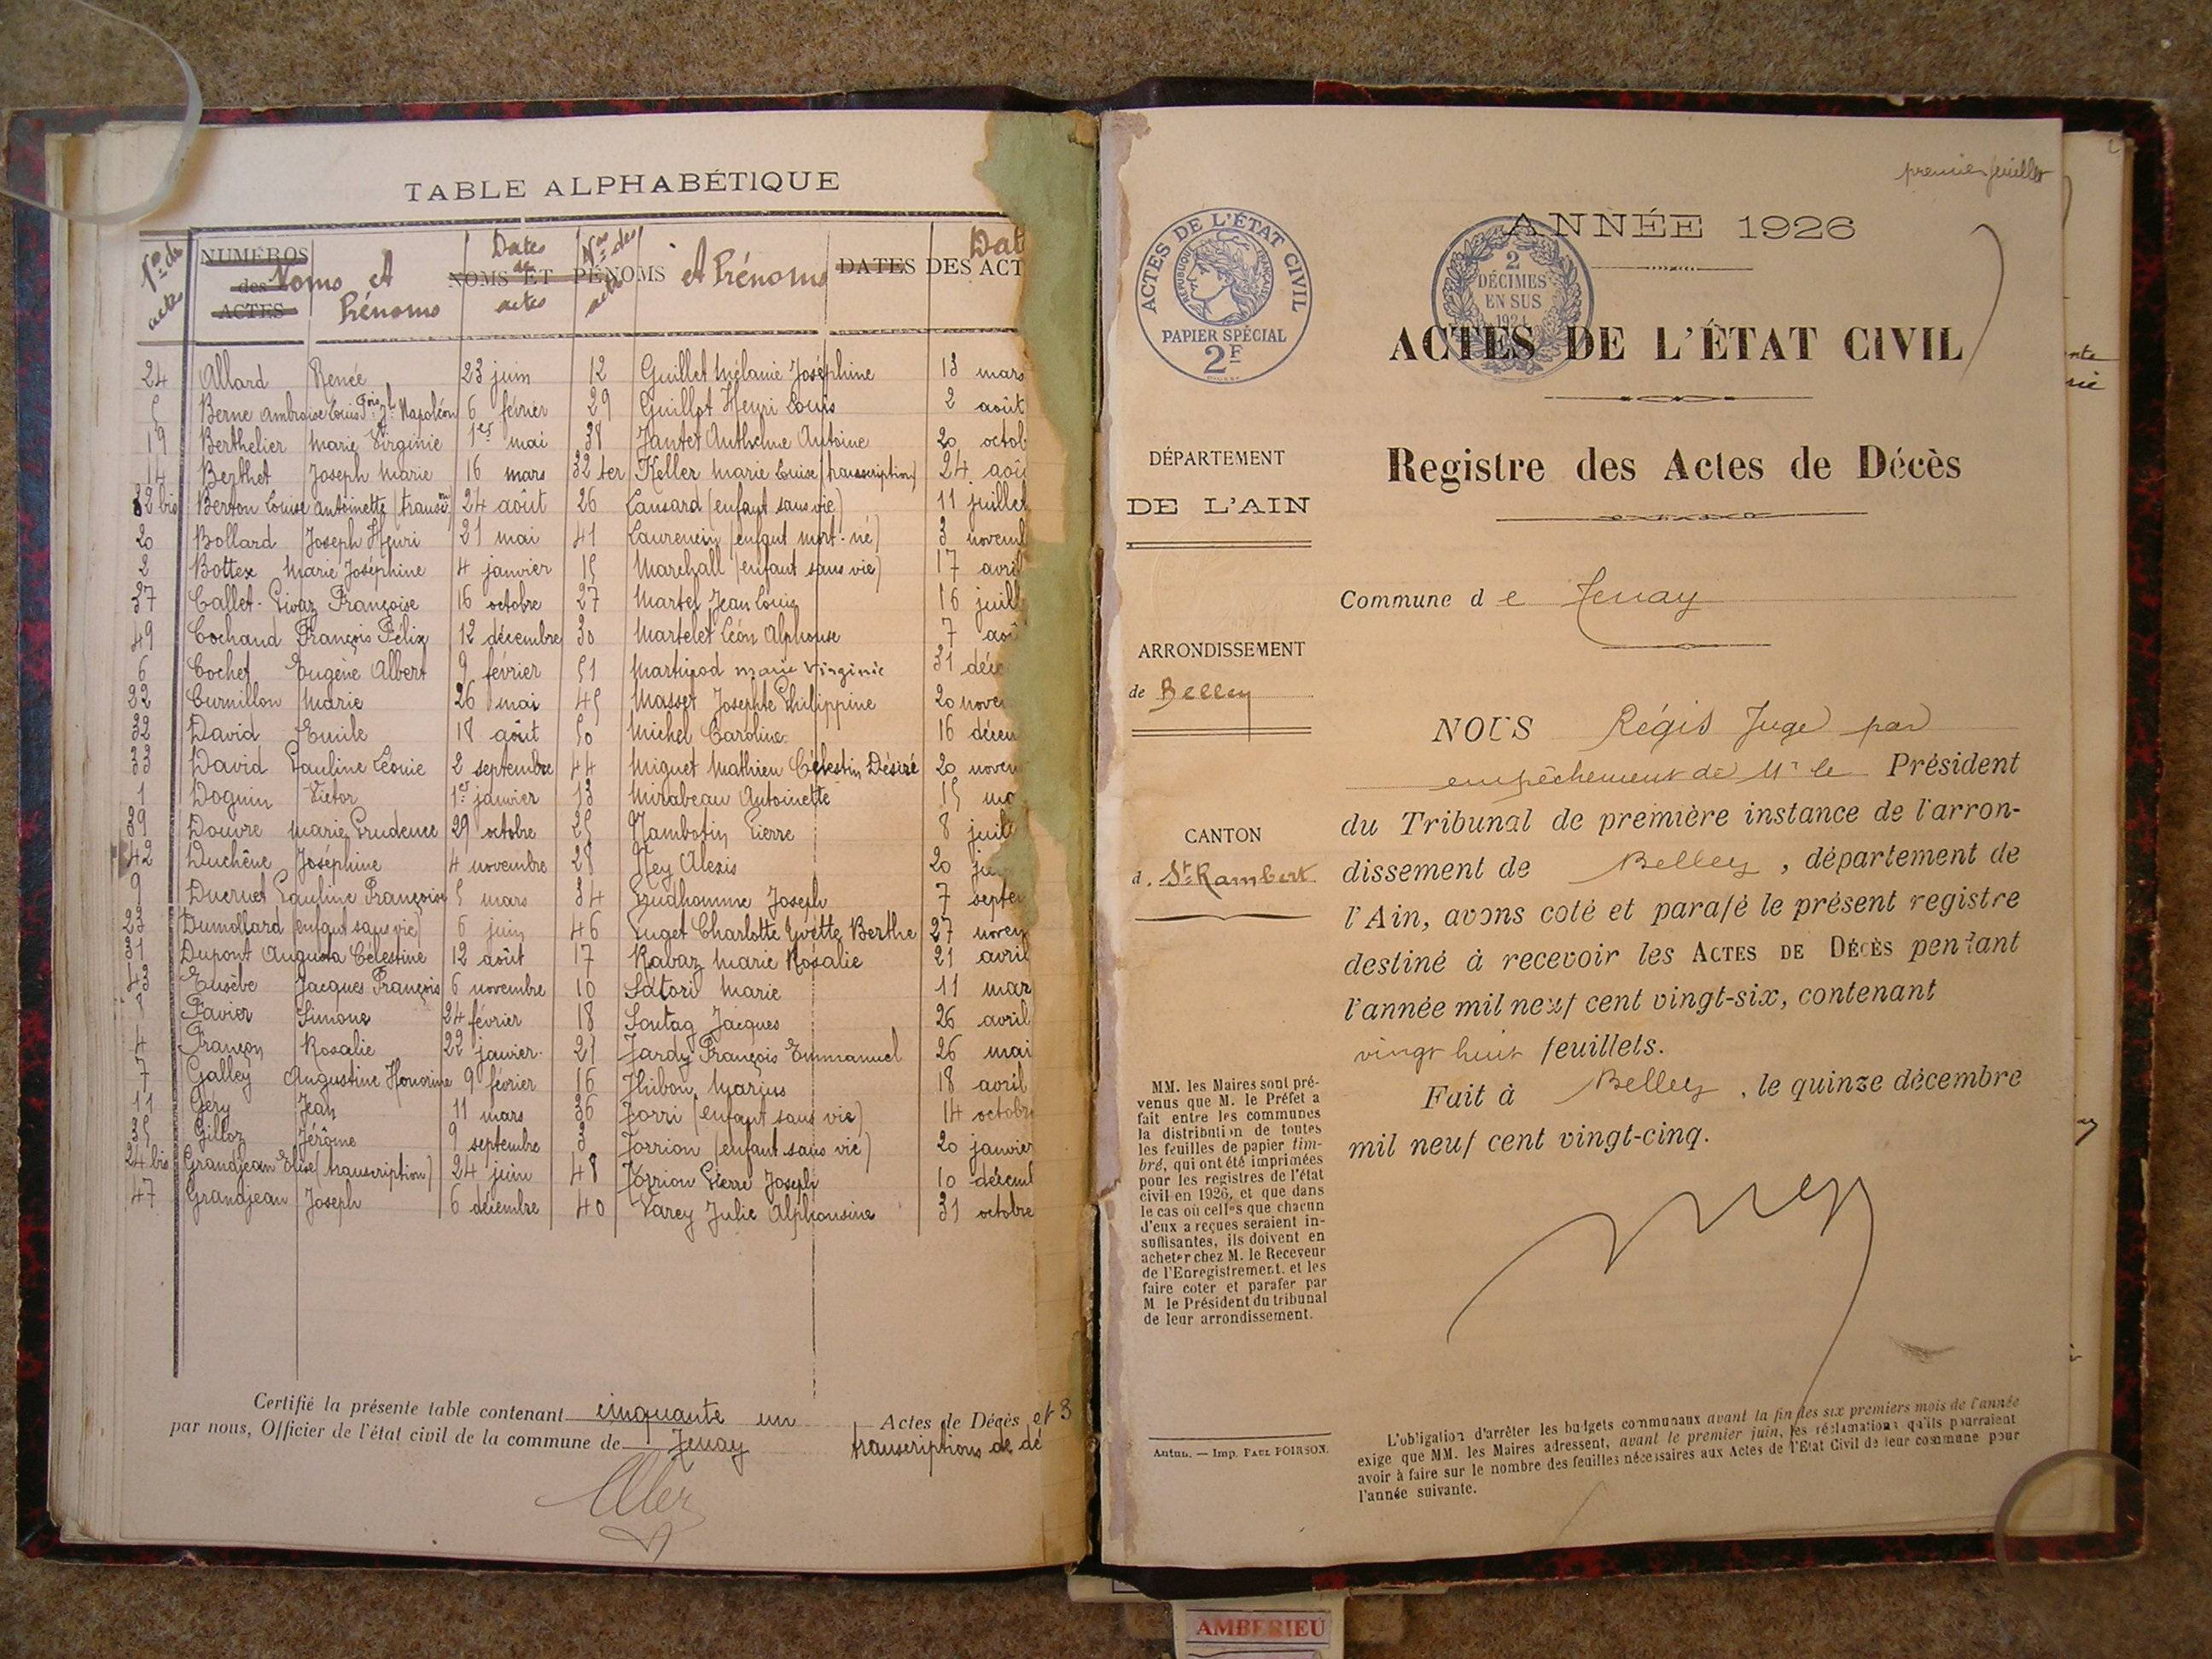 TABLE ALPHABÉTIQUE
Nos des actes NUMÉROS des ACTES Noms et Prénoms Dates de actes NOMS ET PÉNOMS Nos des actes et Prénoms DATES DES ACT Dat
24 Allard Renée 23 juin 12 Guillet Mélanie Joséphine 13 mars
5 Berne Ambroise Louis Napoléon 6 février 29 Guillot Henri Louis 2 août
19 Berthelier Marie Virginie 1er mai 38 Jantet Anthelme Antoine 20 octob
14 Berthet Joseph Marie 16 mars 32 ter Keller Marie Louise (transcription) 24 aoû
32 bis Berton Louise Antoinette 24 août 26 Lansard (enfant sans vie) 11 juillet
20 Bollard Joseph Henri 21 mai 41 Laurencin (enfant mort-né) 3 novemb
2 Bottex Marie Joséphine 4 janvier 15 Marchall (enfant sans vie) 17 avril
37 Callet-Pivaz Françoise 16 octobre 27 Martel Jean Louis 16 juill
49 Cochand François Félix 12 décembre 30 Martelet Léon Alphonse 7 aoû
6 Cochet Eugène Albert 9 février 51 Martinod Marie Virginie 31 déce
22 Curnillon Marie 26 mai 45 Masset Josephte Philippine 20 novem
32 David Emile 18 août 50 Michel Caroline 16 décem
33 David Pauline Léonie 2 septembre 44 Miguet Mathieu Célestin Désiré 20 novem
1 Doguin Victor 1er janvier 13 Mirabeau Antoinette 15 ma
39 Douvre Marie Prudence 29 octobre 25 Nambotin Pierre 8 juill
42 Duchêne Joséphine 4 novembre 28 Ney Alexis 20 ju
9 Ducruet Pauline Françoise 5 mars 34 Prudhomme Joseph 7 septe
23 Dumollard (enfant sans vie) 6 juin 46 Puget Charlotte Yvette Berthe 27 novem
31 Dupont Augusta Célestine 12 août 17 Ravaz Marie Rosalie 21 avril
43 Eusèbe Jacques François 6 novembre 10 Satori Marie 11 mar
8 Favier Simone 24 février 18 Sontag Jacques 26 avril
4 Françon Rosalie 22 janvier 21 Tardy François Emmanuel 26 mai
7 Galley Augustine Honorine 9 février 16 Thibon Marius 18 avril
11 Géry Jean 11 mars 36 Torri (enfant sans vie) 14 octobre
35 Gilloz Jérôme 9 septembre 3 Torrion (enfant sans vie) 20 janvier
24 bis Grandjean Elise (transcription) 24 juin 48 Torrion Pierre Joseph 10 décemb
47 Grandjean Joseph 6 décembre 40 Varey Julie Alphonsine 31 octobre
Certifié la présente table contenant cinquante un Actes de Décès et 3
par nous, Officier de l'état civil de la commune de Tenay transcriptions de dé
premier feuillet
ANNÉE 1926
ACTES DE L'ÉTAT CIVIL
RÉPUBLIQUE FRANÇAISE
PAPIER SPÉCIAL
2F
2
DÉCIMES
EN SUS
1924
ACTES DE L'ÉTAT CIVIL
Registre des Actes de Décès
DÉPARTEMENT
DE L'AIN
Commune de Tenay
ARRONDISSEMENT
de Belley
CANTON
d. St Rambert
NOUS Régis Juge par
empêchement de Mr le Président
du Tribunal de première instance de l'arron-
dissement de Belley, département de
l'Ain, avons coté et parafé le présent registre
destiné à recevoir les ACTES DE DÉCÈS pendant
l'année mil neuf cent vingt-six, contenant
vingt huit feuillets.
Fait à Belley, le quinze décembre
mil neuf cent vingt-cinq.
MM. les Maires sont pré-
venus que M. le Préfet a
fait entre les communes
la distribution de toutes
les feuilles de papier tim-
bré, qui ont été imprimées
pour les registres de l'état
civil en 1926, et que dans
le cas où celles que chacun
d'eux a reçues seraient in-
suffisantes, ils doivent en
acheter chez M. le Receveur
de l'Enregistrement. et les
faire coter et parafer par
M le Président du tribunal
de leur arrondissement.
Autun. — Imp. PAUL POIRSON.
L'obligation d'arrêter les budgets communaux avant la fin des six premiers mois de l'année
exige que MM. les Maires adressent, avant le premier juin, les réclamations qu'ils pourraient
avoir à faire sur le nombre des feuilles nécessaires aux Actes de l'Etat Civil de leur commune pour
l'année suivante.
AMBERIEU